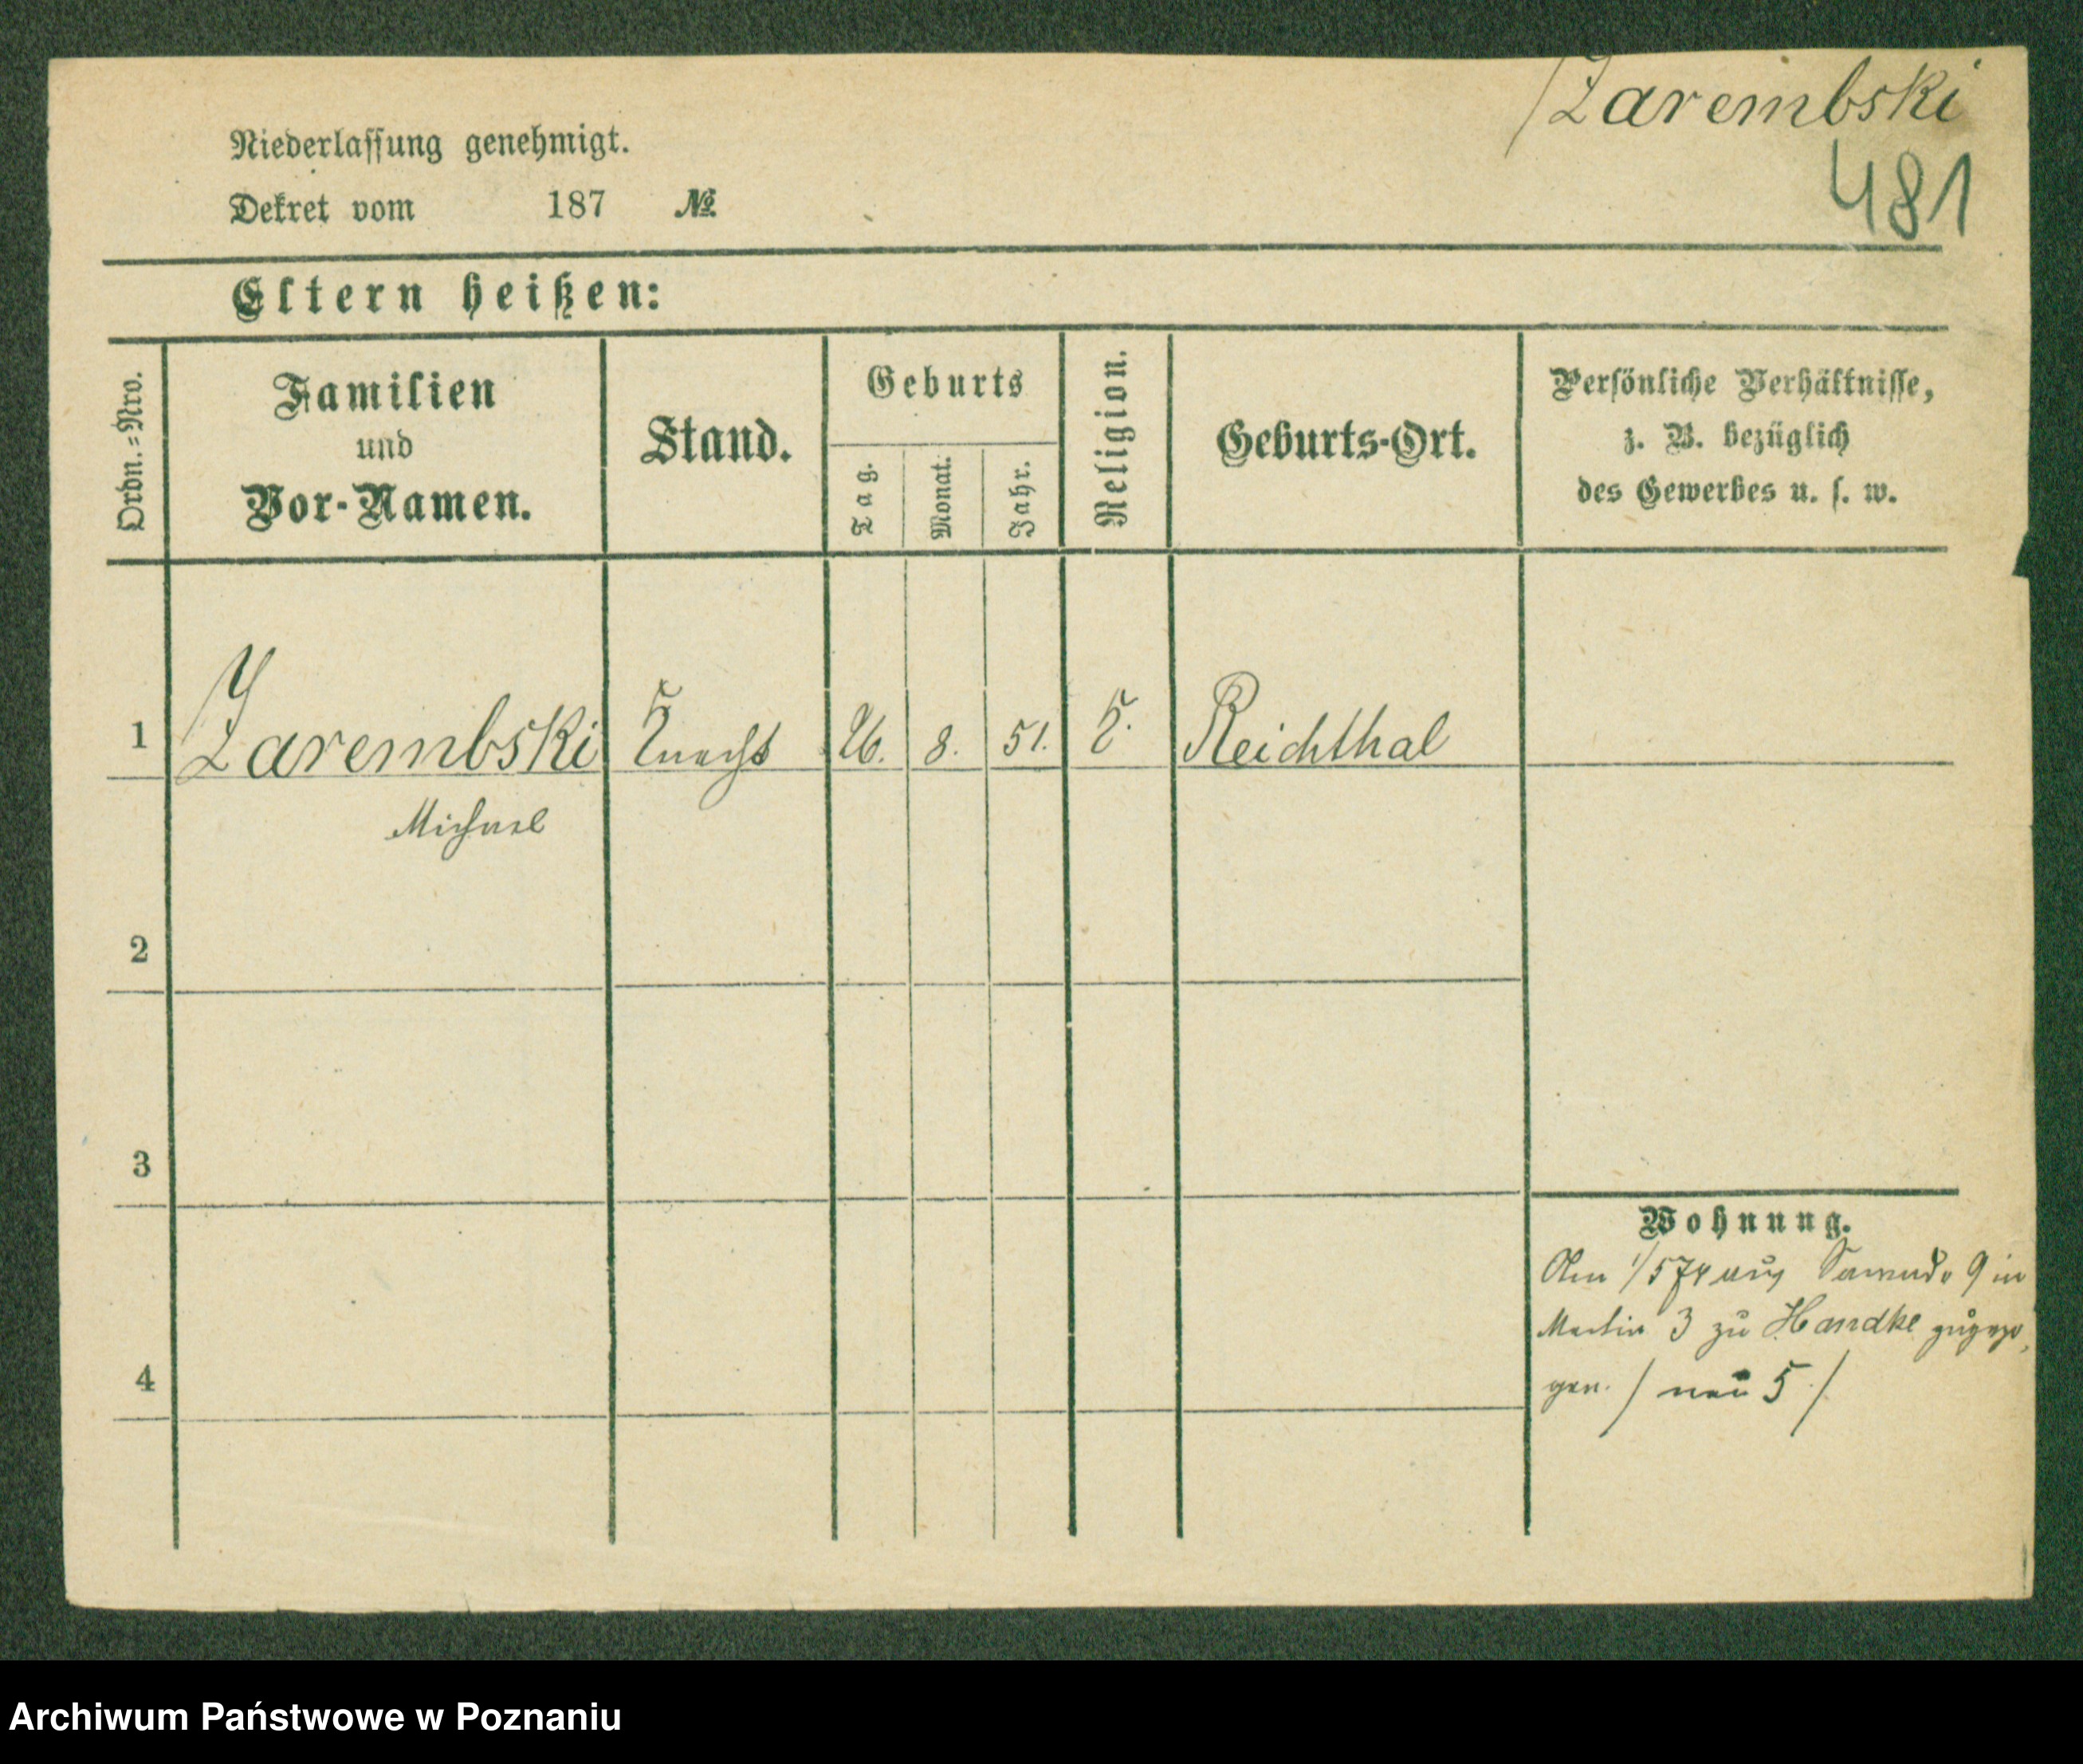 Zarembski
481
Niederlassung genehmigt.
Dekret vom 187 №
Eltern heißen:
Ordn.=Nro.
Familien
und
Vor-Namen.
Stand.
Geburts
Tag.
Monat.
Jahr.
Religion.
Geburts-Ort.
Persönliche Verhältnisse,
z. B. bezüglich
des Gewerbes u. s. w.
1 Zarembski Knecht 26. 8. 51. K. Reichthal
Michael
2
3
4
Wohnung.
Am 1/5 74 aus 9 in
Martin 3 zu Handke zugezo
gen. / neu 5 /
Archiwum Państwowe w Poznaniu